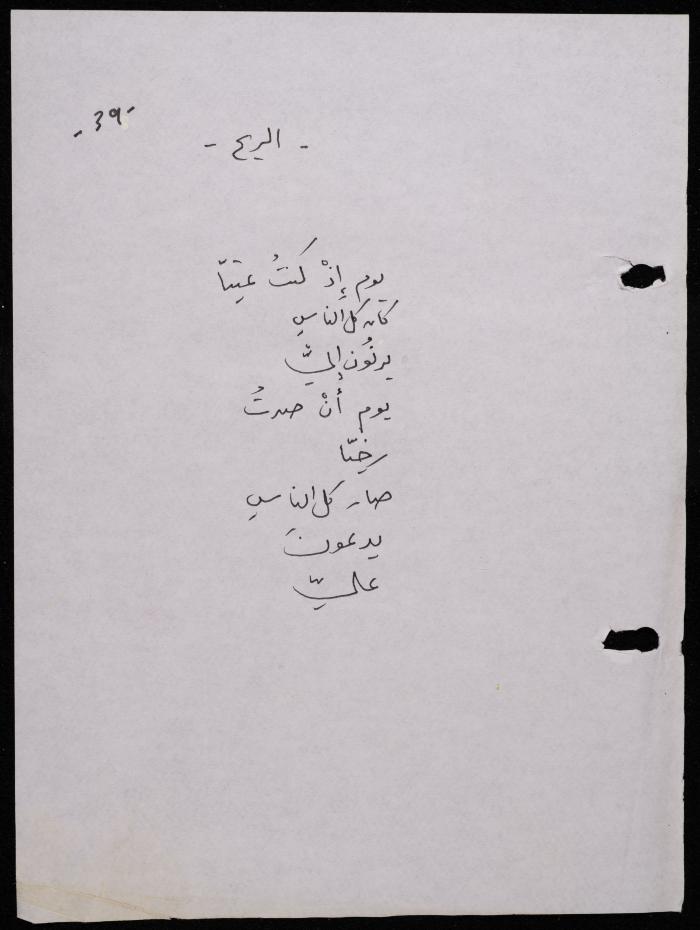 -39-
- الريح -
يوم إذْ كنتُ عتيّا
كان كل الناسِ
يرنُون إليَّ
يوم أنْ صرتُ
رخيّا
صار كل الناسِ
يدعونَ
عليّ